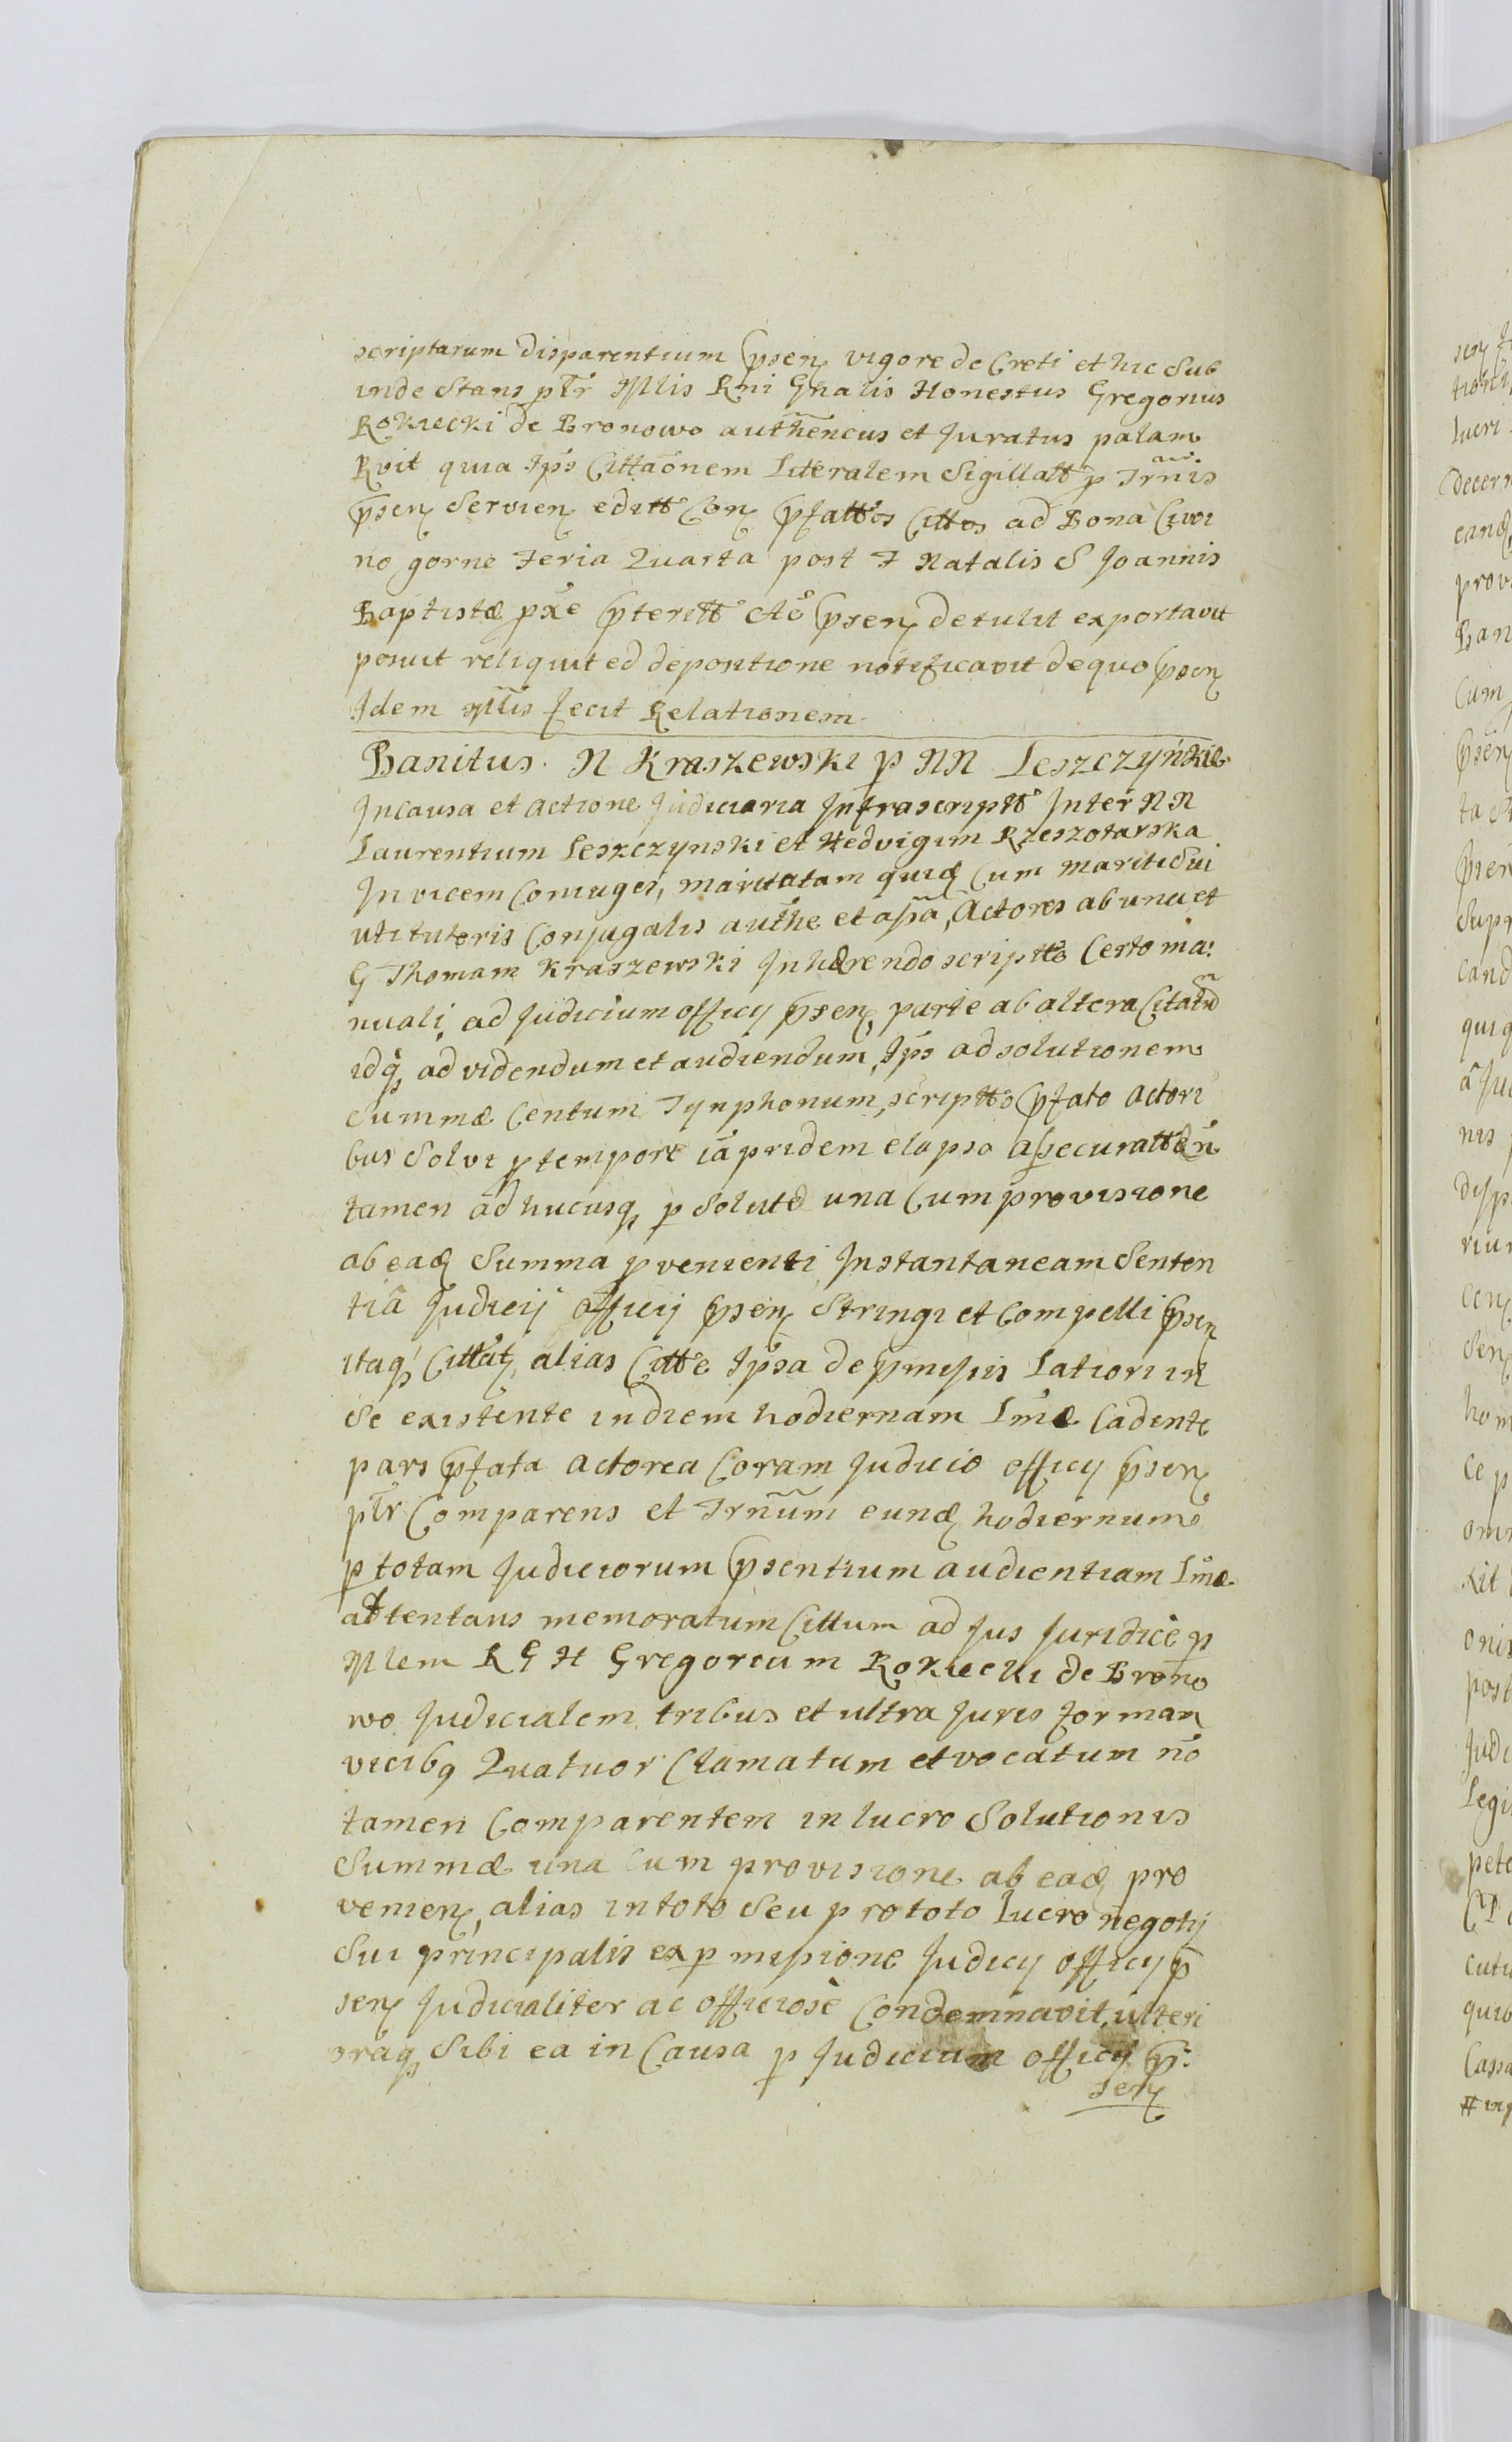 scriptarum disparentium p̄sen vigore de Creti et hic Sub
inde Stans ptr Mlis Rni Gnalis Honestus Gregorius
Rokiecki de Bronowo authencus et Juratus palam
Rvit quia Ips Cittaonem Literalem Sigillatt p Trnis
p̄sen Servien editt Con p̄fattos Cittos ad Bona Civi
no gorne Feria Quarta post F Natalis S Joannis
Baptistæ pxe p̄teritt Ao p̄sen detulit exportavit
posuit reliquit ed depositione notificavit de quo p̄sen
Idem Mlis fecit Relationem
Banitus N Kraszewski p NN Leszczyńskie
In causa et actione Judiciaria Infrascriptt Inter NN
Laurentium Leszczynski et Hedvigim Rzeszotarska
In vicem Coniuges, maritatam quid Cum mariti Sui
uti tutoris Conjugalis authe et assa, Actores ab una et
G Thomam Kraszewski Inhærendo scriptto Certo ma:
nuali ad Judicium officij p̄sen, parte ab altera Citatu
idq, ad videndum et audiendum, Ips ad solutionem
Summæ Centum Tynphonum, scriptto p̄fato actori
bus Solvi p tempore ia pridem elapso assecuratt n
tamen ad hucusq, p Solute una Cum provisione
ab ead Summa p venienti Instantaneam Senten
tia Judicij officij p̄sen Stringi et Compelli p̄sen
itaq Cittat, alias Citte Ipsa de pmissis Latiori in
Se existente in diem hodiernam Lmæ Cadente
pars p̄fata actorea Coram Judicio officij p̄sen
ptr Comparens et Trnum eund hodiernum
p totam Judiciorum p̄sentium audientiam Lme
attentans memoratum Cittum ad Jus Juridicè p
Mlem R G H Gregorium Rokiecki de Brono
wo Judicialem tribus et ultra Juris forman
vicibq Quatuor Clamatum et vocatum nō
tamen Comparentem in lucro Solutionis
Summæ una Cum provisione ab ead pro
venien, alias in toto Seu pro toto Lucro negotij
Sui principalis ex p missione Judicij officij p̄
sen Judicialiter ac officiosè Condemnavit, ulteri
oraq Sibi ea in Causa p Judicium officij p̄:
sen